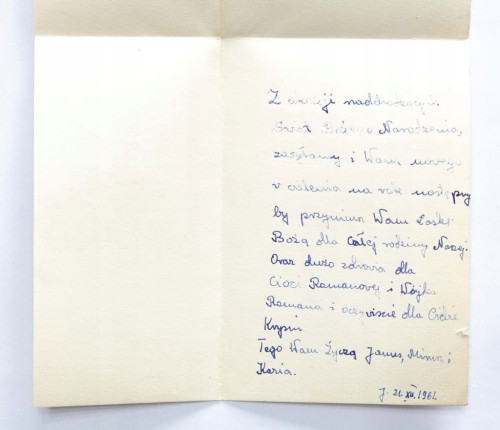 Z okazji nadchodzących
Świąt Bożego Narodzenia,
zasyłamy i Wam nowego
na rok następny
by przyniósł Wam Łaskę
Bożą dla całej rodziny Naszej.
Oraz dużo zdrowia dla
Cioci Romanowej i Wójka
Romana i oczywiście dla Ciebie
Krysiu
Tego Wam Życzą Janus, i
Karia.
J. 21.XII.1961.